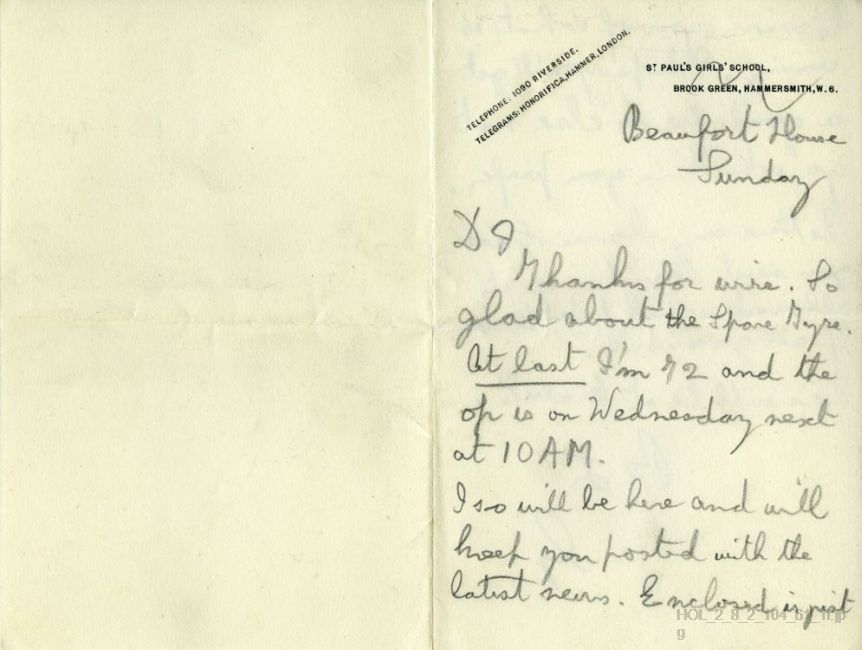 TELEPHONE: 1090 RIVERSIDE.
TELEGRAMS: HONORIFICA, HAMMER, LONDON.
ST PAUL'S GIRLS' SCHOOL,
BROOK GREEN, HAMMERSMITH, W. 6.
Beaufort House
Sunday
D I
Thanks for wire. So
glad about the Spare Tyre.
At last I'm 72 and the
op is on Wednesday next
at 10 AM.
Iso will be here and will
keep you posted with the
latest news. Enclosed is just
HOL_2_8_2_104_61_1f.jp
g